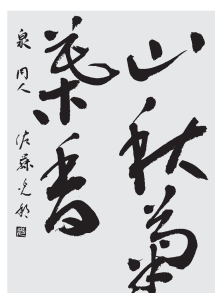 山秋菊
葉香
泉 同人 佐藤